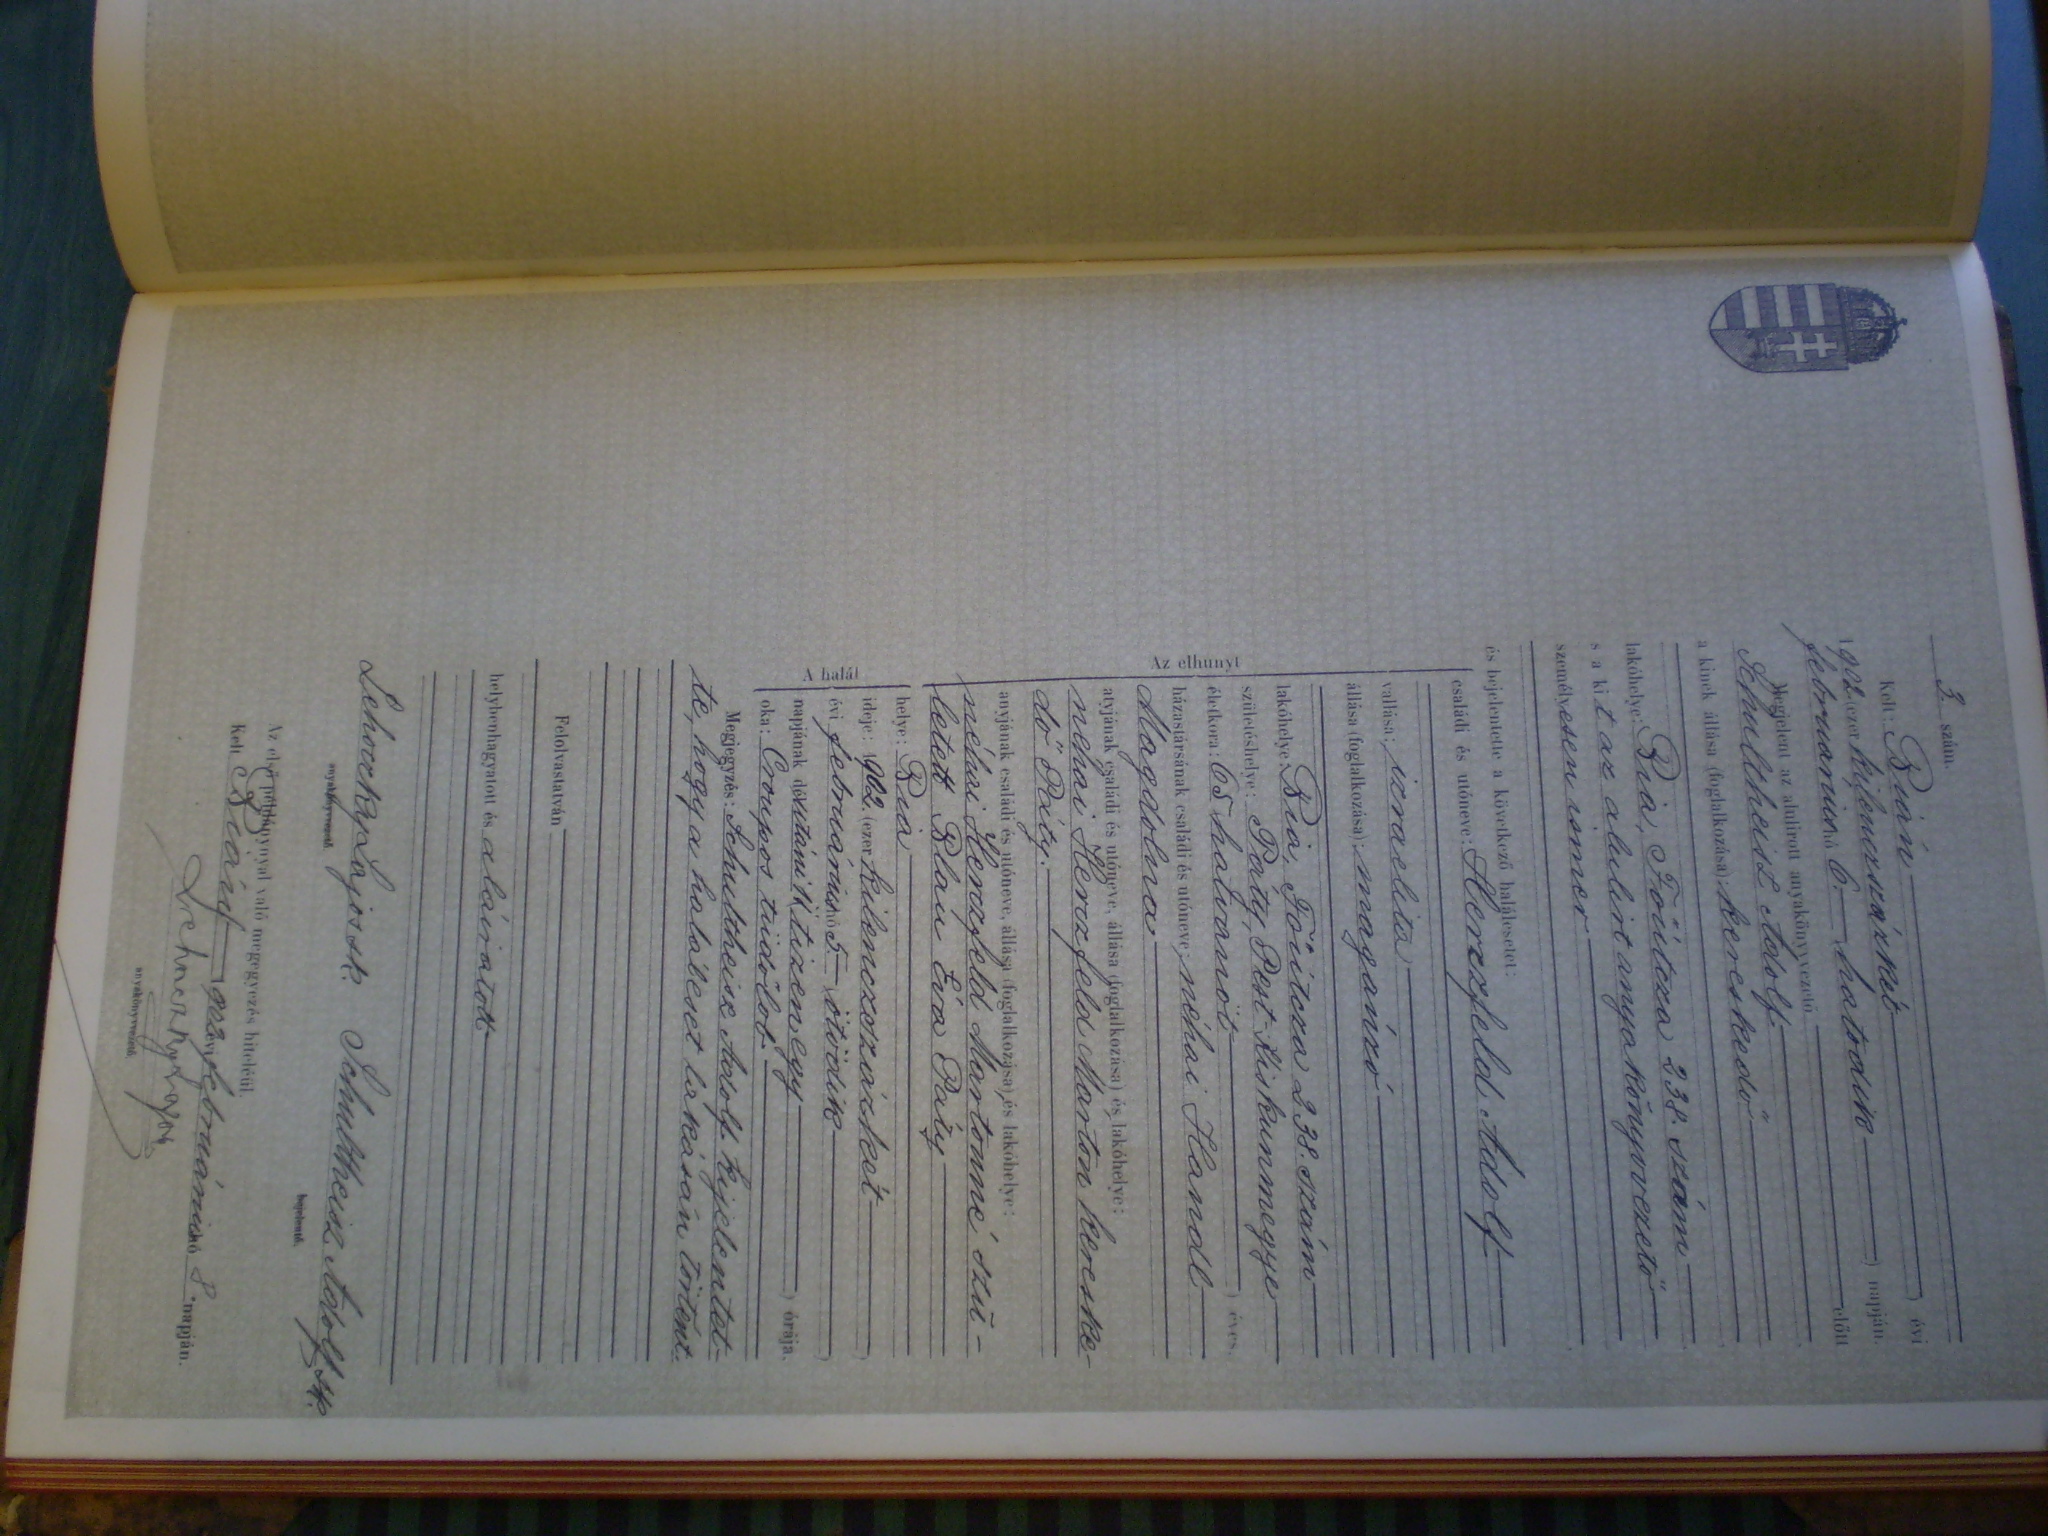 3. szám.
Kelt: Bián évi
1902 (ezer kilenczszázkét) napján.
februárius hó 6. hatodik
Megjelent az alulirott anyakönyvvezető előtt
Schultheisz Adolf
a kinek állása (foglalkozása): kereskedő
lakóhelye: Bia, Főútcza 238. szám
s a kit az alulirt anyakönyvvezető
személyesen ismer
és bejelentette a következő halálesetet:
családi és utóneve: Herzfeld Adolf
Az elhunyt
vallása: izraelita
állása (foglalkozása): magánzó
lakóhelye: Bia, Főútcza 238. szám
születéshelye: Páty, Pest-Kiskunmegye
életkora: 65 hatvanöt éves.
házastársának családi és utóneve: néhai Handl
Magdolna
atyjának családi és utóneve, állása (foglalkozása) és lakóhelye:
néhai Herzfeld Márton kereske-
dő Páty.
anyjának családi és utóneve, állása (foglalkozása) és lakóhelye:
néhai Herzfeld Mártonné szü-
letett Blau Éva Páty
A halál
helye: Bia
ideje: 1902. (ezer kilenczszázkét)
évi februárius hó 5 ötödik
napjának délutáni 11 (tizenegy) órája.
oka: Croupos tüdőlob.
Megjegyzés: Schultheisz Adolf kijelentet-
te, hogy a haláleset lakásán történt.
Felolvastatván
helybenhagyatott és aláíratott
Lehoczky Lajos sk. Schultheisz Adolf sk.
anyakönyvvezető. bejelentő.
Az első példánynyal való megegyezés hiteléül.
Kelt Bián 902 évi februárius hó 8 napján.
Lehoczky Lajos
anyakönyvvezető.